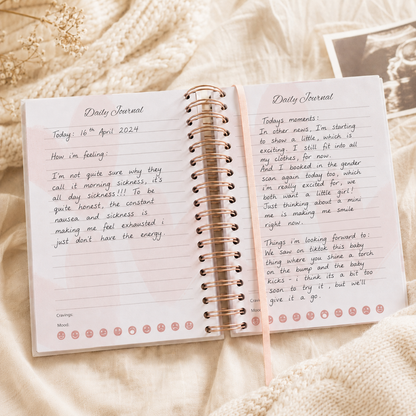 Daily Journal
Today: 16th April 2024
How im feeling:
I'm not quite sure why they
call it morning sickness, it's
all day sickness!!! To be
quite honest, the constant
nausea and sickness is
making me feel exhausted i
just don't have the energy.
Cravings:
Mood:
Daily Journal
Todays moments:
In other news, I'm starting
to show a little, which is
exciting. I still fit into all
my clothes, for now.
And I booked in the gender
scan again today too, which
i'm really excited for, we
both want a little girl!
Just thinking about a mini
me is making me smile
right now.
Things i'm looking forward to:
We saw on tiktok this baby
thing where you shine a torch
on the bump and the baby
kicks - i think its a bit too
soon to try it, but we'll
give it a go.